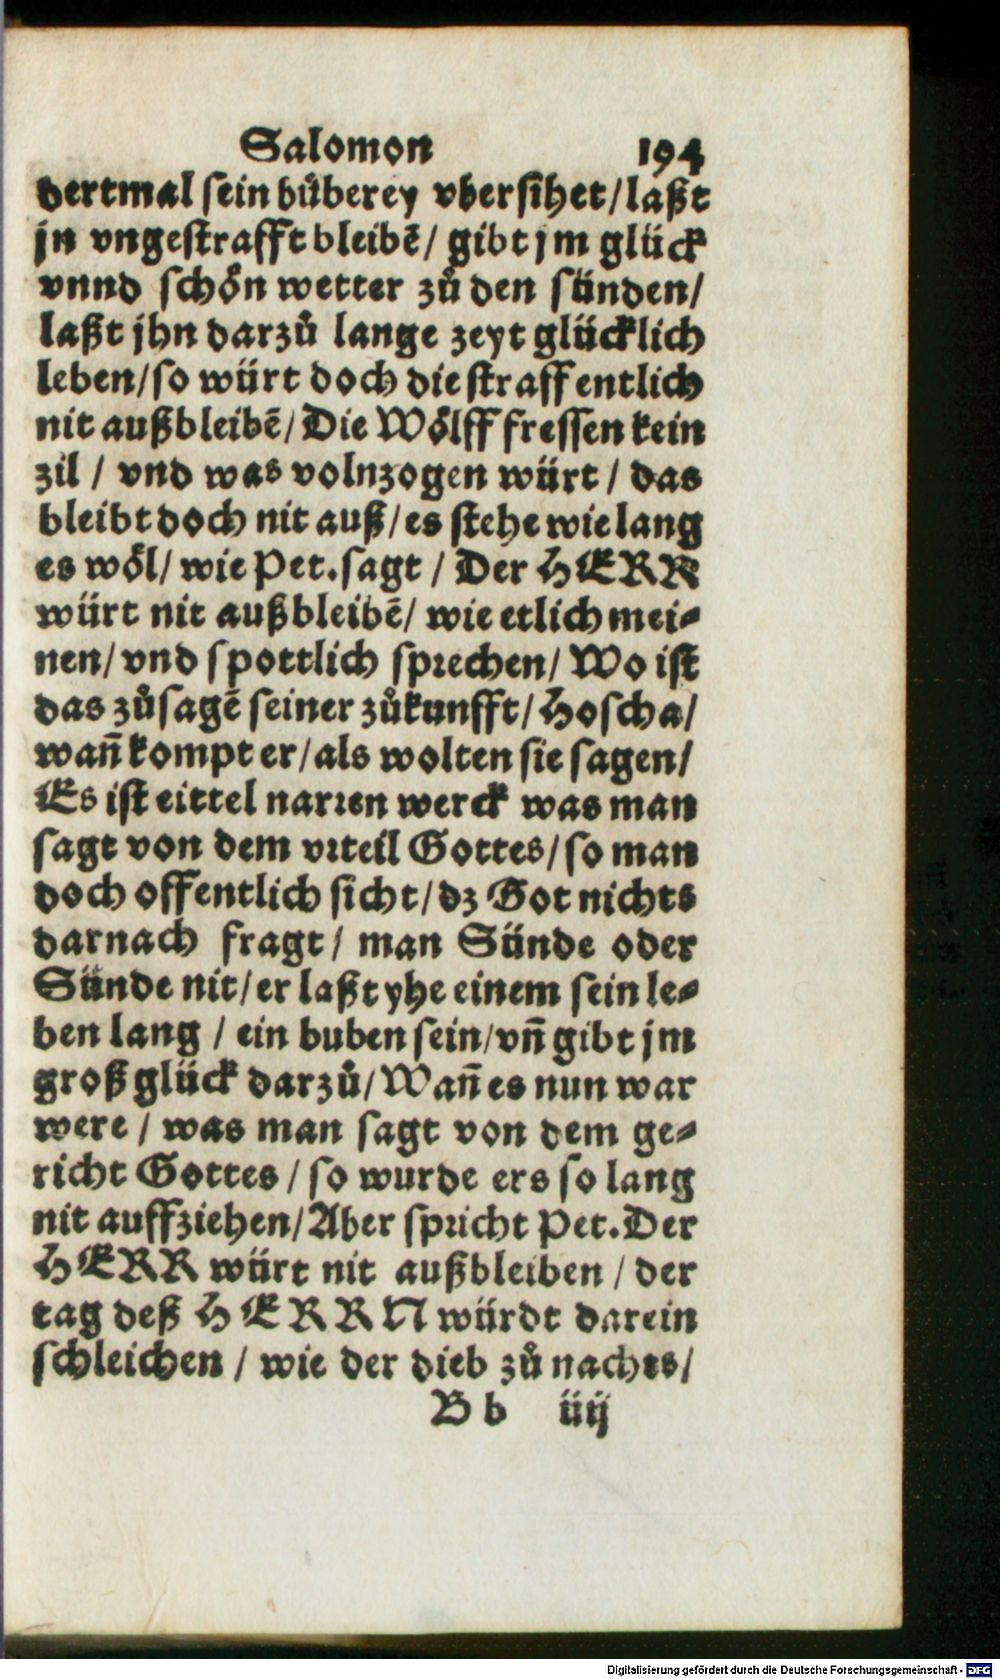 Salomon 194
dertmal sein bůberey vbersihet/laßt
jn vngestrafft bleibē/ gibt jm glück
vnnd schön wetter zů den sünden/
laßt jhn darzů lange zeyt glücklich
leben/so würt doch die straff entlich
nit außbleibē/Die Wölff fressen kein
zil / vnd was volnzogen würt / das
bleibt doch nit auß/es stehe wie lang
es wöl/ wie Pet.sagt / Der HERR
würt nit außbleibē/ wie etlich mei⸗
nen/vnd spottlich sprechen/ Wo ist
das zůsagē seiner zůkunfft/Hoscha/
wañ kompt er/als wolten sie sagen/
Es ist eittel narren werck was man
sagt von dem vrteil Gottes/so man
doch offentlich sicht/dz Got nichts
darnach fragt/ man Sünde oder
Sünde nit/er laßt yhe einem sein le⸗
ben lang / ein buben sein/vñ gibt jm
groß glück darzů/Wañ es nun war
were / was man sagt von dem ge⸗
richt Gottes / so wurde ers so lang
nit auffziehen/Aber spricht Pet.Der
HERR würt nit außbleiben / der
tag deß HERRN würdt darein
schleichen / wie der dieb zů nachts/
B b iiij
Digitalisierung gefördert durch die Deutsche Forschungsgemeinschaft - DFG